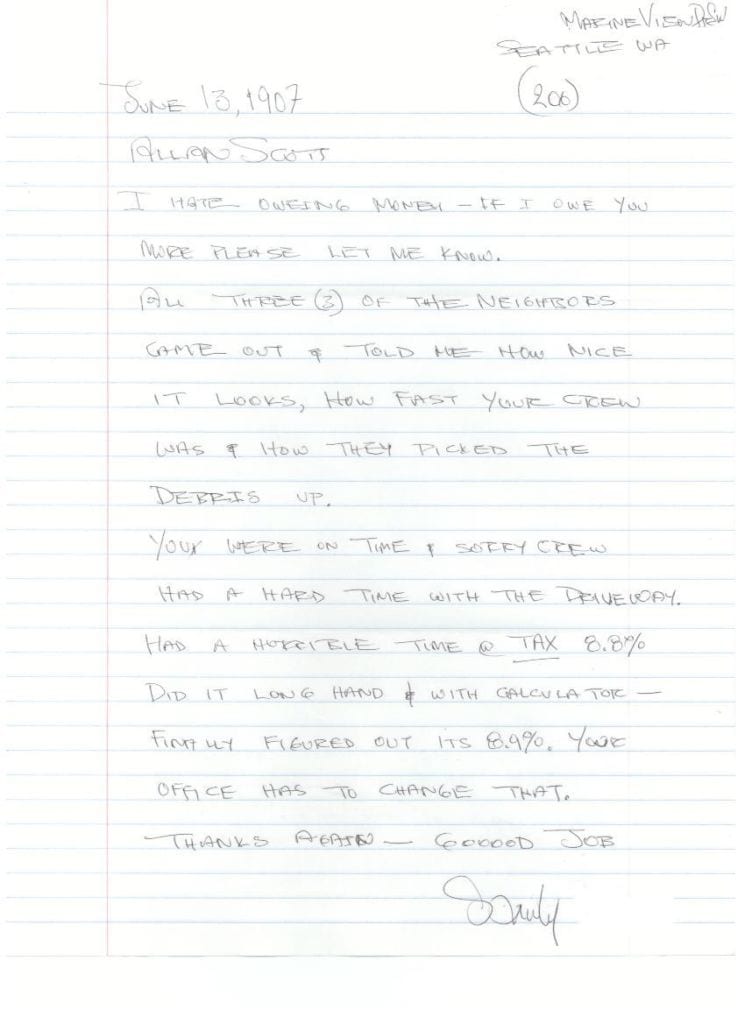 Marine View Dr SW
Seattle WA
(206)
June 13, 1907
Allan Scott
I hate oweing money – if I owe you
more please let me know.
All three (3) of the neighbors
came out & told me how nice
it looks, how fast your crew
was & how they picked the
debris up.
Your were on time & sorry crew
had a hard time with the driveway.
Had a horrible time @ tax 8.8%
Did it long hand & with calculator –
finally figured out its 8.9%. Your
office has to change that.
Thanks again – gooood job